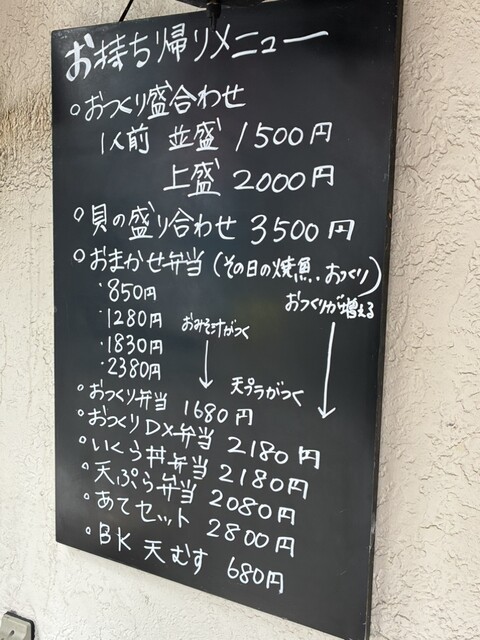 お持ち帰りメニュー
○おつくり盛合わせ
1人前 並盛 1500円
上盛 2000円
○貝の盛り合わせ 3500円
○おまかせ弁当(その日の焼魚、おつくり)
・850円
・1280円
・1830円
・2380円
おみそ汁がつく
天プラがつく
おつくりが増える
○おつくり弁当 1680円
○おつくりDX弁当 2180円
○いくら丼弁当 2180円
○天ぷら弁当 2080円
○あてセット 2800円
○BK 天むす 680円